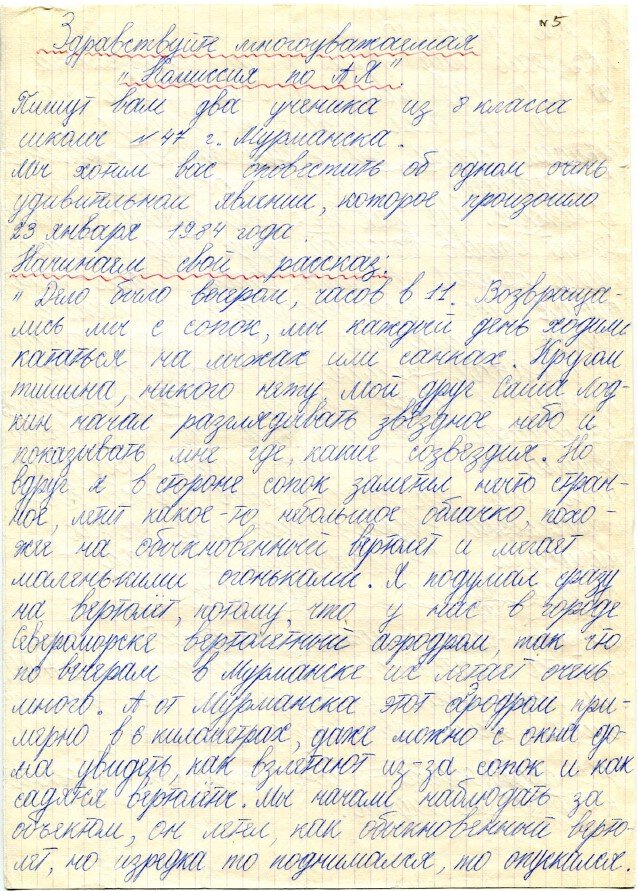 №5
Здравствуйте многоуважаемая
"Комиссия по АЯ".
Пишут вам два ученика из 8 класса
школы №47 г. Мурманска.
Мы хотим вас оповестить об одном очень
удивительном явлении, которое произошло
23 января 1984 года.
Начинаем свой рассказ:
" Дело было вечером, часов в 11. Возвраща-
лись мы с сопок, мы каждый день ходили
кататься на лыжах или санках. Кругом
тишина, никого нету. Мой друг Саша Лод-
кин начал разглядывать звёздное небо и
показывать мне где, какие созвездия. Но
вдруг я в стороне сопок заметил нечто стран-
ное, летит какое-то, небольшое облачко, похо-
жее на обыкновенный вертолёт и мегает
маленькими огоньками. Я подумал сразу
на вертолёт, потому, что у нас в городе
Североморске вертолётный аэродром, так что
по вечерам в Мурманске их летает очень
много. А от Мурманска этот аэродром при-
мерно в 6 километрах, даже можно с окна до-
ма увидеть, как взлетают из-за сопок и как
садятся вертолёты. Мы начали наблюдать за
объектом, он летел, как обыкновенный верто-
лёт, но изредка то поднимался, то опускался.